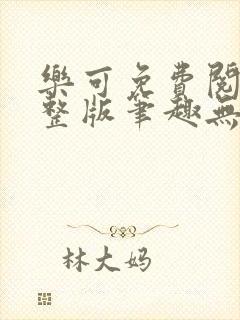 樂可免費閱
整版筆趣無
林大妈